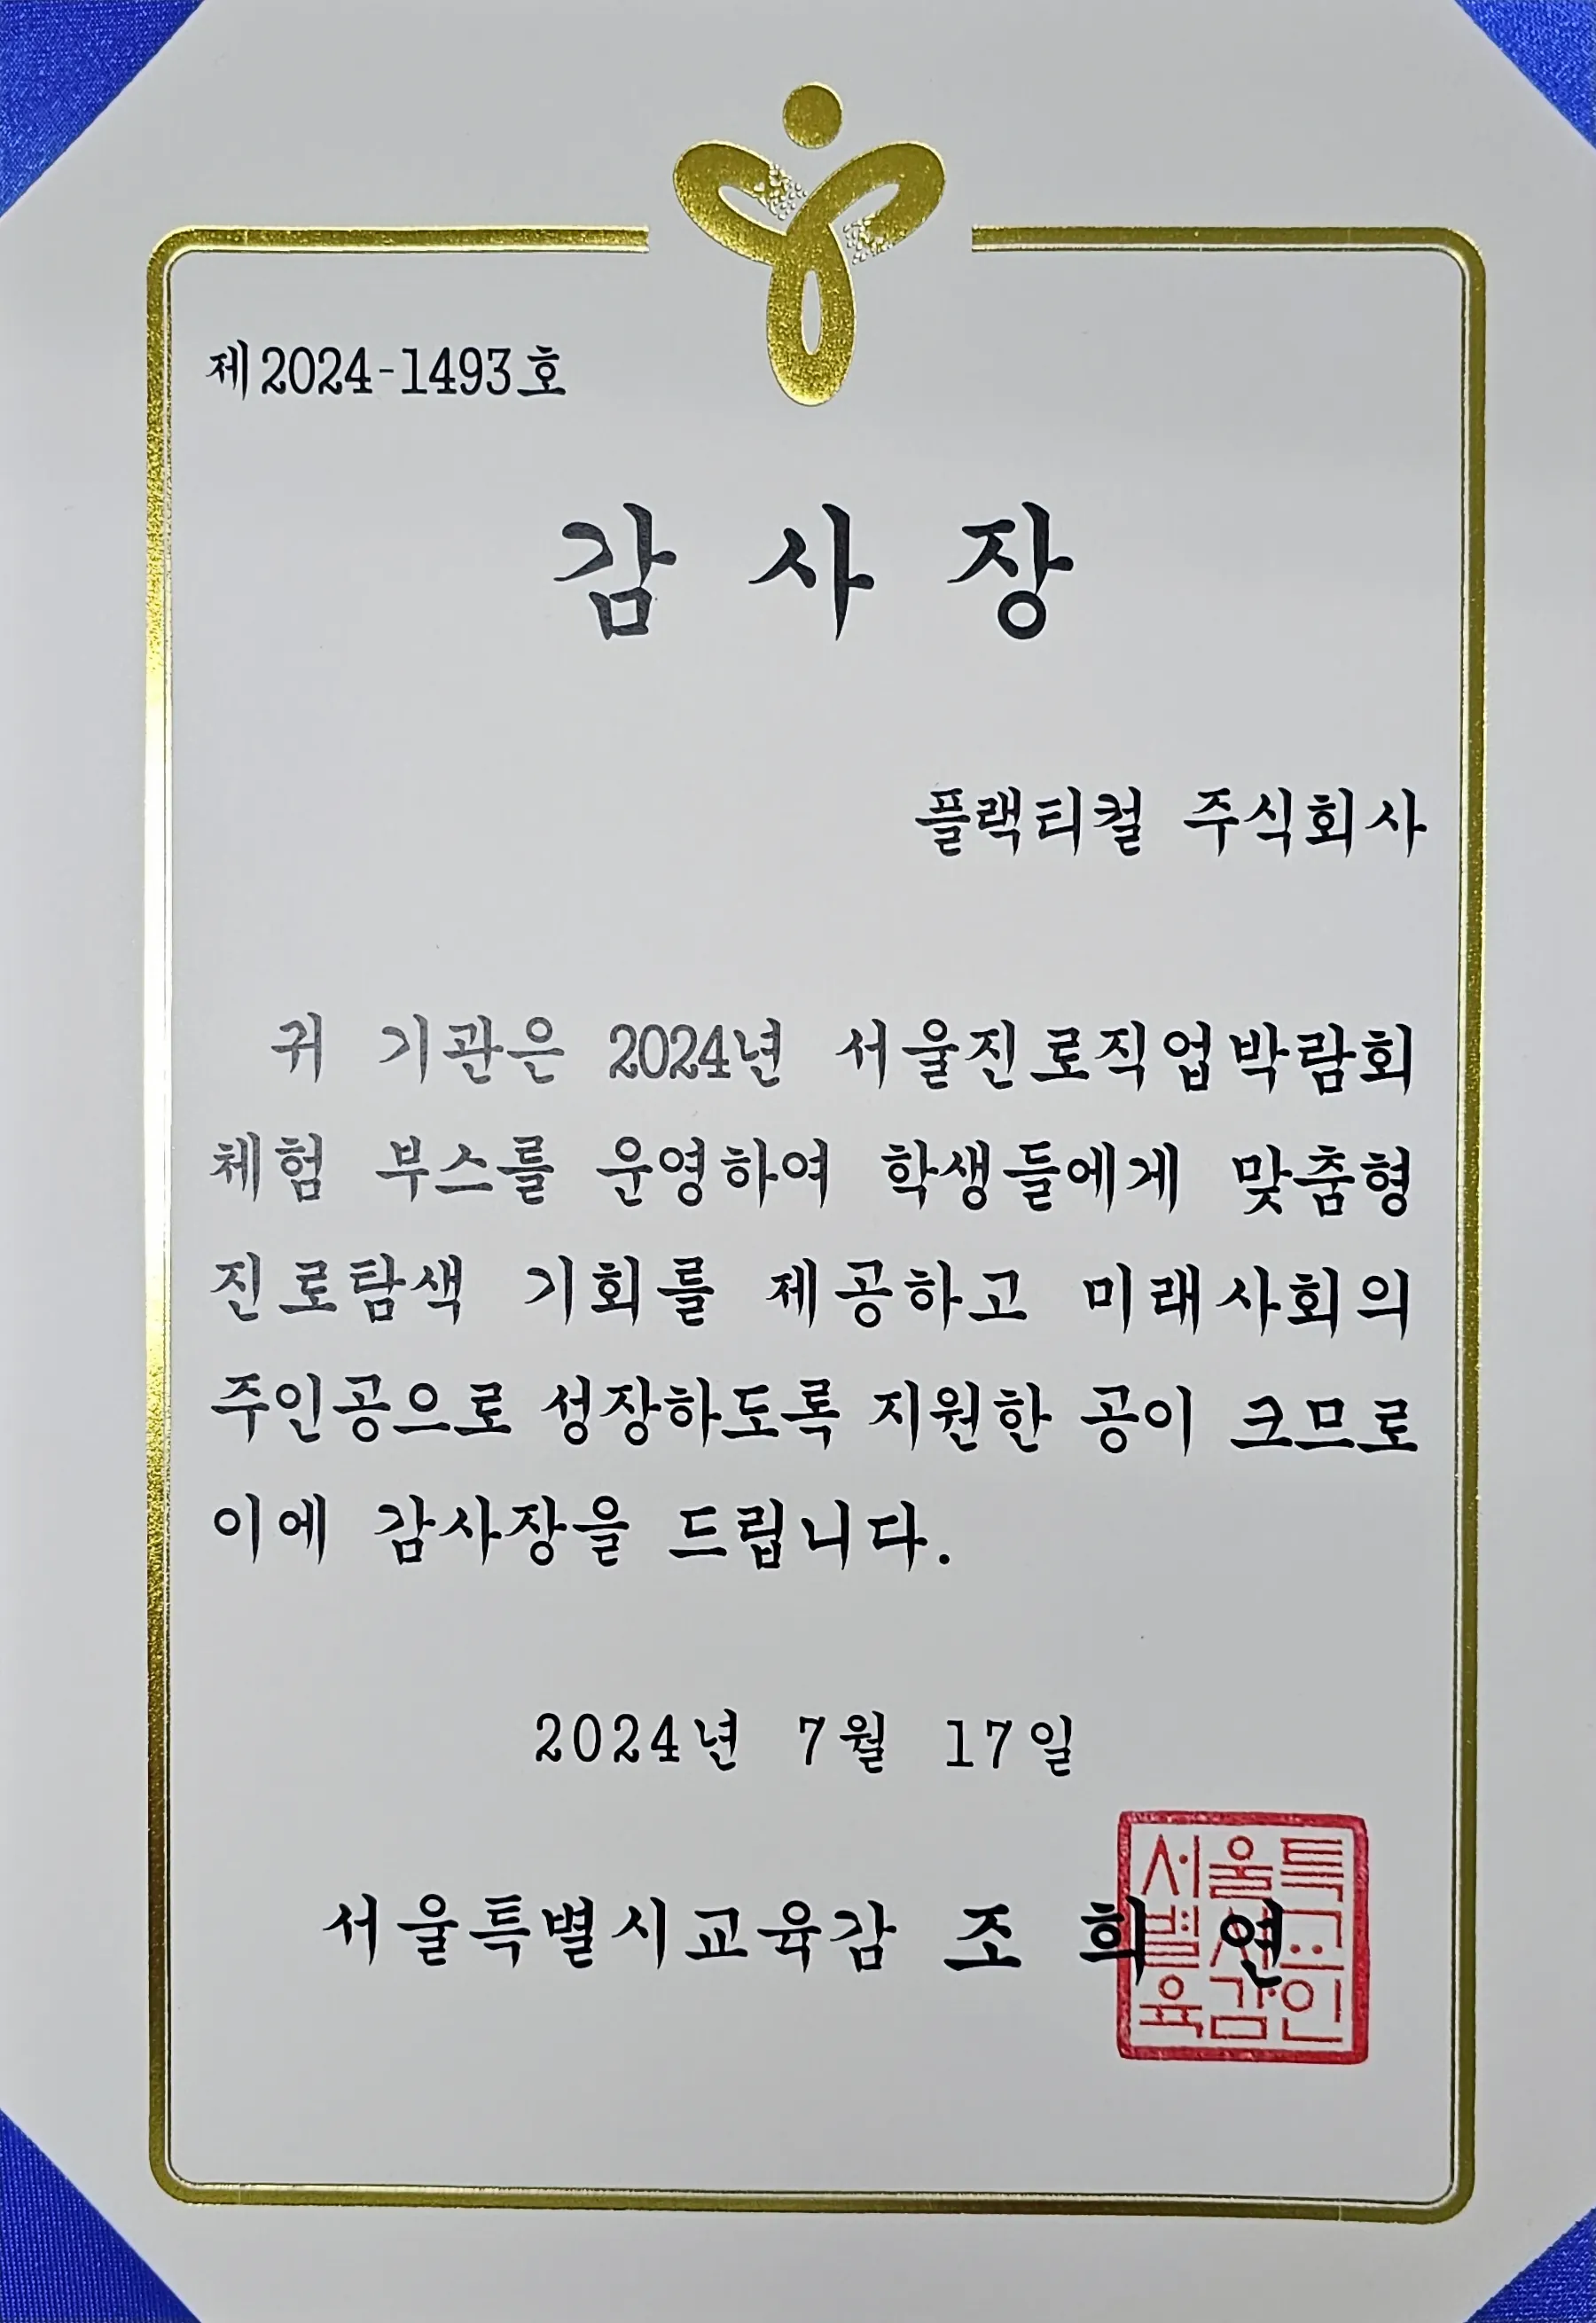 제2024-1493호
감 사 장
플랙티컬 주식회사
귀 기관은 2024년 서울진로직업박람회
체험 부스를 운영하여 학생들에게 맞춤형
진로탐색 기회를 제공하고 미래사회의
주인공으로 성장하도록 지원한 공이 크므로
이에 감사장을 드립니다.
2024년 7월 17일
서울특별시교육감 조 희 연
서울특
별시교
육감인